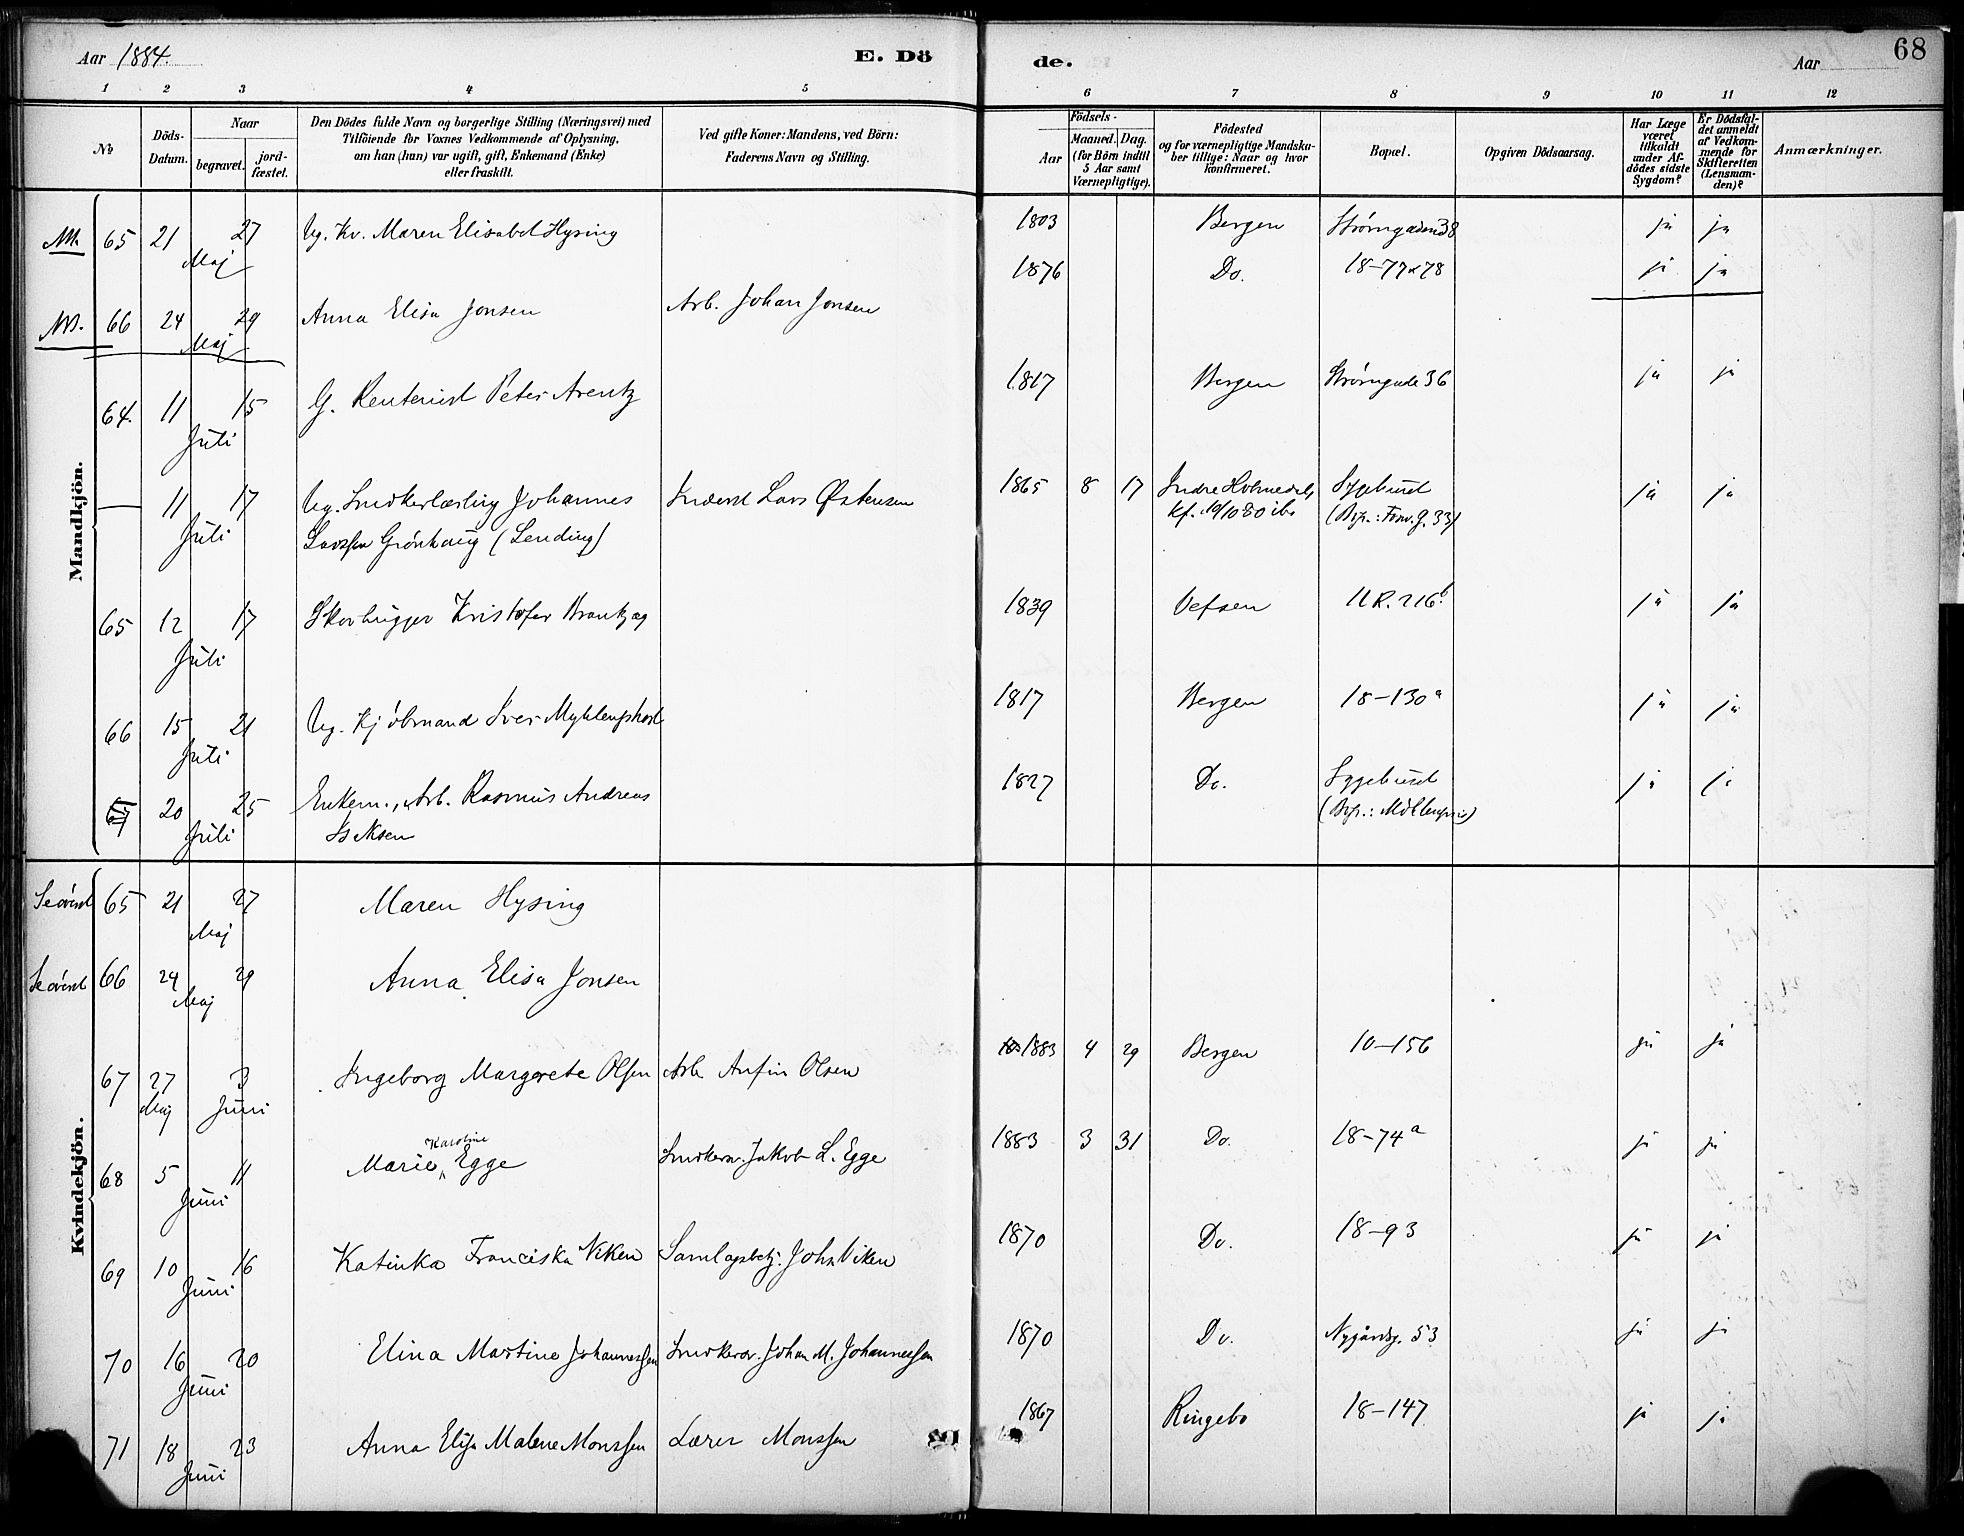 Aar 1884. E. Dö de. Aar 68
1 2 3 4 5 6 7 8 9 10 11 12
No
Döds-Datum.
Naar
begravet.
jord-fæstet.
Den Dödes fulde Navn og borgerlige Stilling (Næringsvei) med
Tilföiende for Voxnes Vedkommende af Oplysning,
om han (hun) var ugift, gift, Enkemand (Enke)
eller fraskilt.
Ved gifte Koner: Mandens, ved Börn:
Faderens Navn og Stilling.
Födsels-
Aar
Maaned. Dag.
(for Börn indtil
5 Aar samt
Værnepligtige).
Födested
og for værnepligtige Mandska-
ber tillige: Naar og hvor
konfirmeret.
Bopæl.
Opgiven Dödsaarsag.
Har Læge
været
tilkaldt
under Af-
dödes sidste
Sygdom?
Er Dödsfal-
det anmeldt
af Vedkom-
mende for
Skifteretten
(Lensman-
den)?
Anmærkninger.
Mandkjön.
65 21 27 Maj Ug. Kv. Maren Elisabet Hysing 1803 Bergen Strømgaden 38 ja ja
66 24 29 Maj Anna Elisa Jonsen Arb. Johan Jonsen 1876 Do. 18-77 78 ja ja
64. 11 15 Juli G. Rentenist Peter Arentz 1817 Bergen Strømgade 36 ja ja
— 11 17 Juli Ug. Snedkerlærling Johannes Inderst Lars Østensen 1865 8 17 Indre Holmedal, Sygehuset ja ja
Larssen Grönhaug (Lending) kf. 10/10 80 ibo
65 12 17 Juli Skovhugger Kristofer 1839 Vefsen 11 R. 216 ja ja
66 15 21 Juli Ug. Kjøbmand Iver 1817 Bergen 18-130a ja ja
67 20 25 Juli Enkem., Arb. Rasmus Andreas 1827 Do. Sygehuset ja ja
Isaksen (Bop.: Möllenpris)
Kvindekjön.
65 21 27 Maj Maren Hysing
66 24 29 Maj Anna Elisa Jonsen
67 27 Maj 3 Juni Ingeborg Margrete Olsen Arb Anfin Olsen 1883 4 29 Bergen 10-156 ja ja
68 5 11 Juni Marie Karoline Egge Snedkersv. Jakob L. Egge 1883 3 31 Do. 18-74a ja ja
69 10 16 Juni Katinka Franciska Viken Samlagsbetj. John Viken 1870 Do. 18-93 ja ja
70 16 20 Juni Elina Martine Johannessen Snedkersv. Johan M. Johannessen 1870 Do. Nygårdsg. 53 ja ja
71 18 23 Juni Anna Elisa Malene Monssen Lærer Monssen 1867 Ringebo 18-147 ja ja